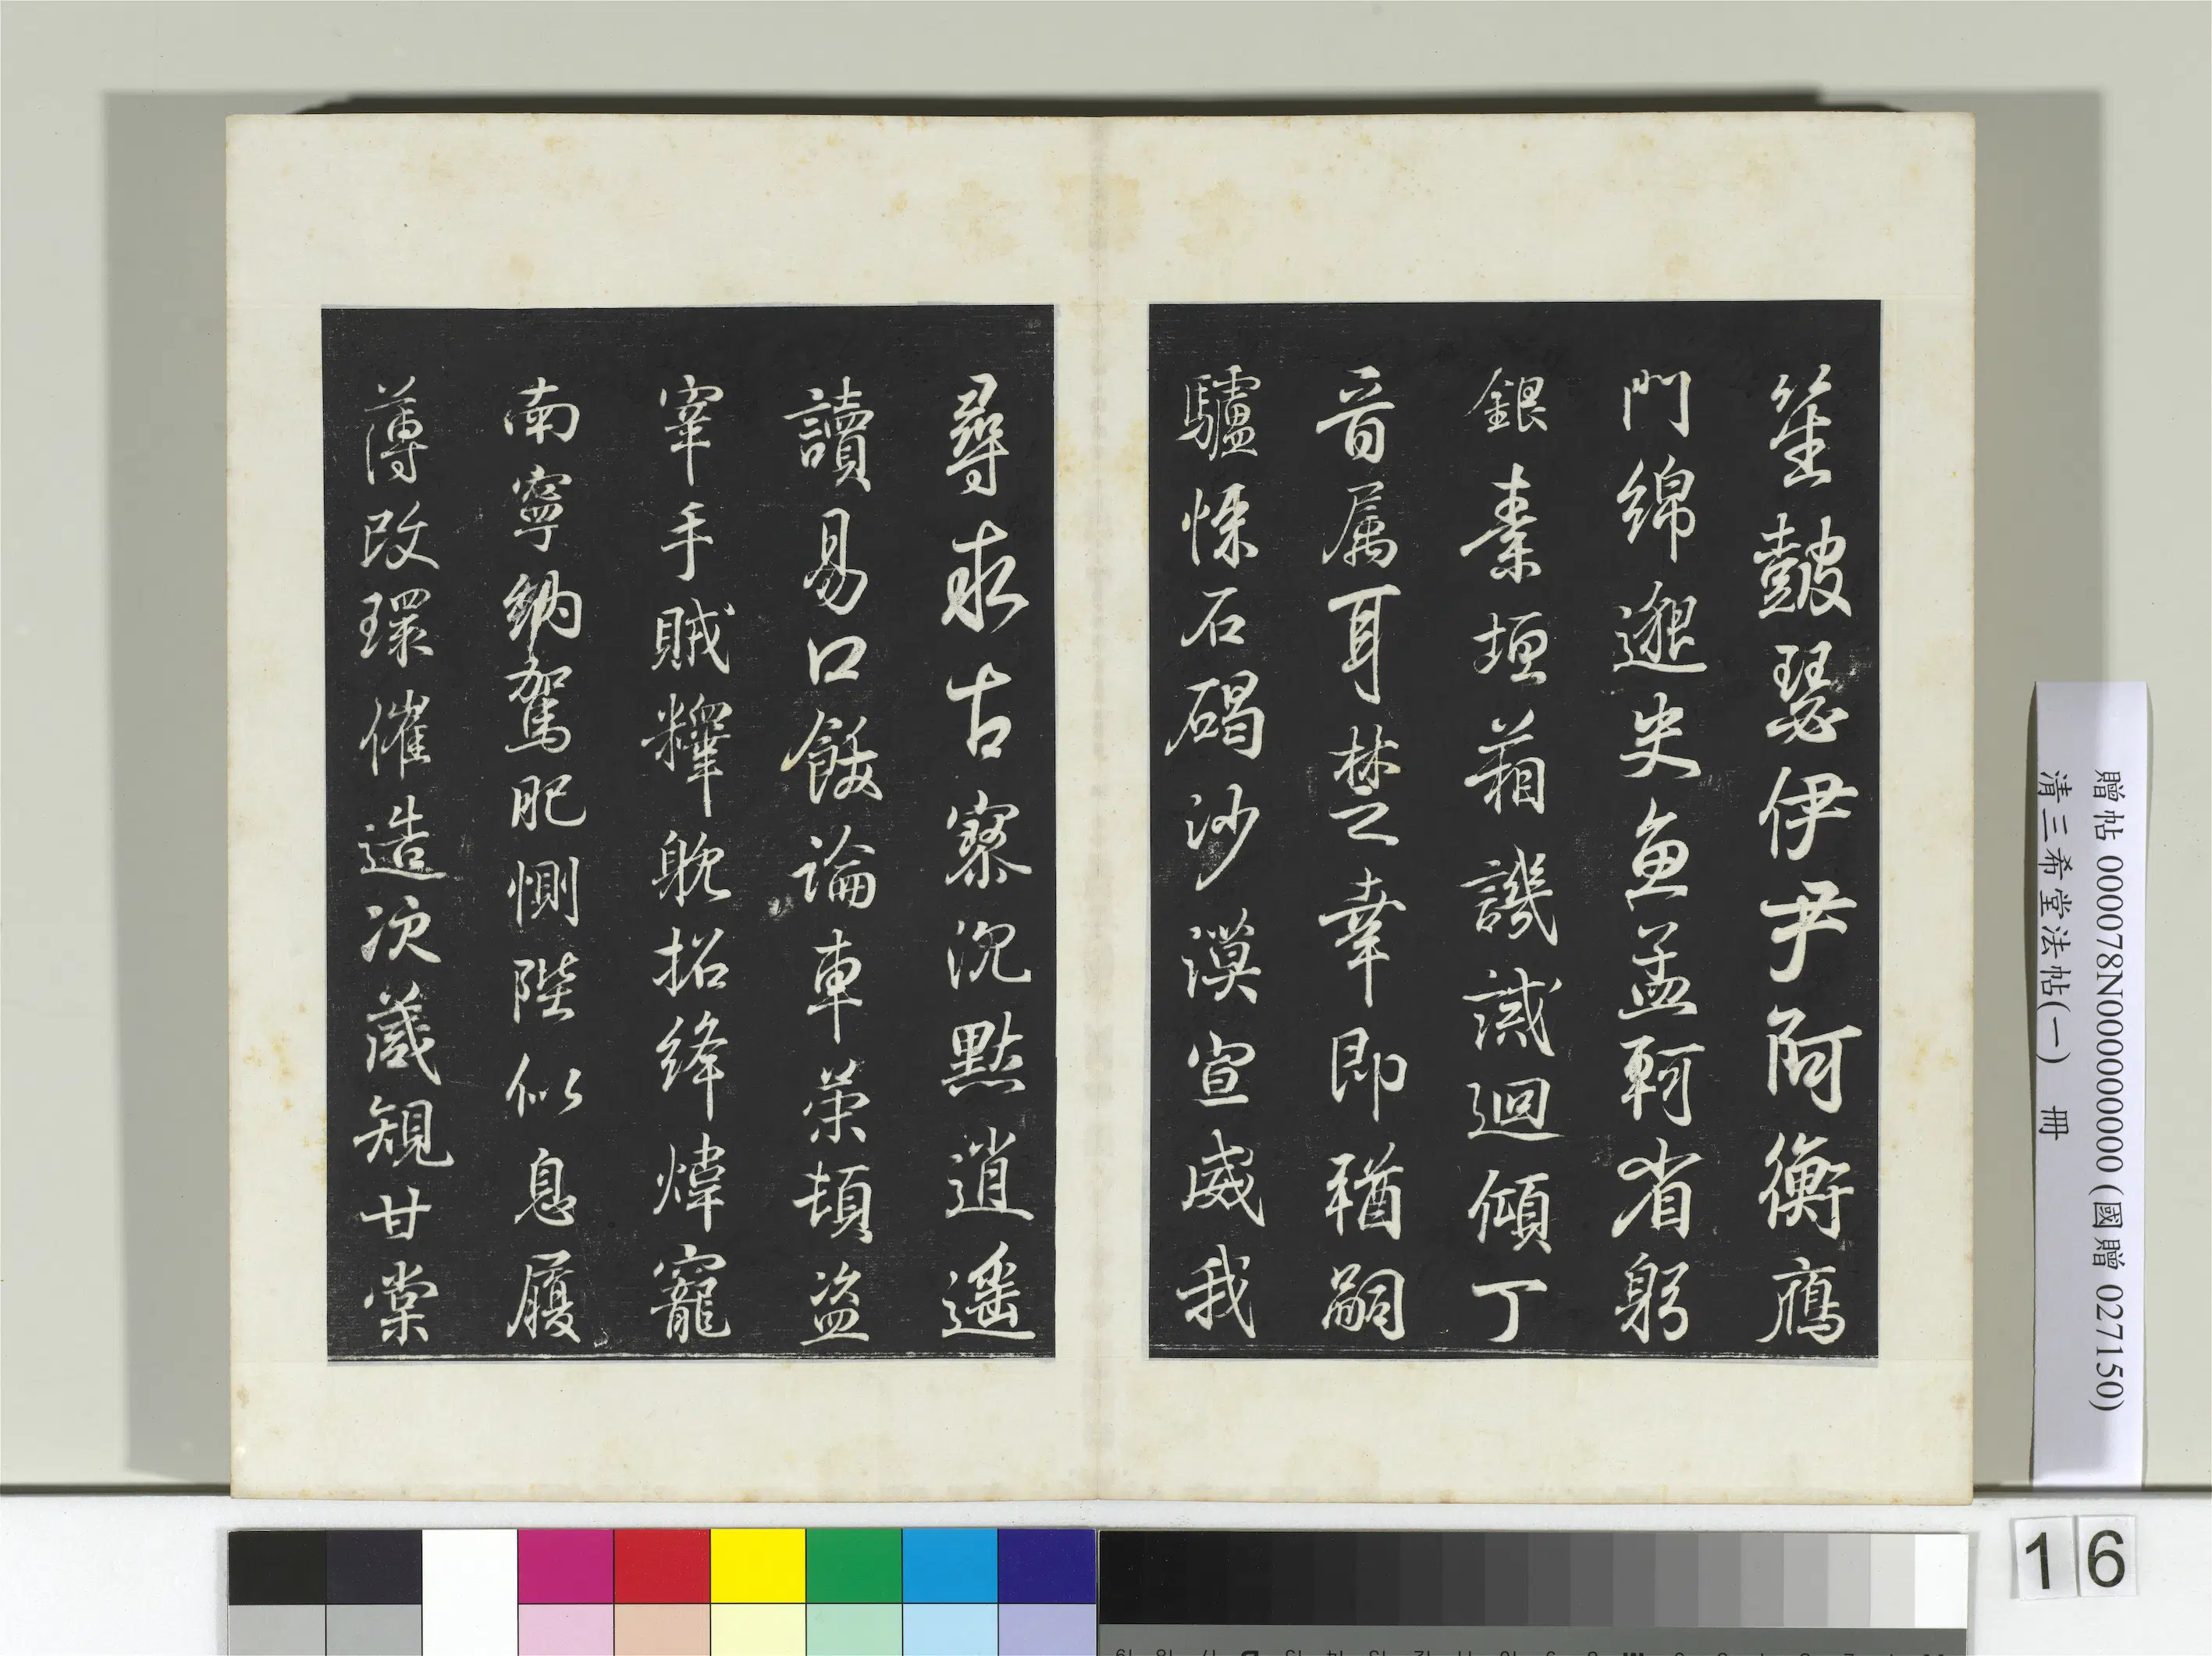 笙鼓瑟伊尹阿衡鴈
門綿邈史魚孟軻省躬
銀素垣葙譏誡迴傾丁
音属耳楚幸即猶嗣
驢悚石碣沙漠宣威我
尋求古寮沉黙逍遥
讀易口飯論車荣頓盗
宰手賊釋躭招絳煒寵
南寧納駕肥惻陛似息履
薄改環催造次箴規甘棠
贈帖 000078N000000000 (國贈 027150)
清三希堂法帖(一) 冊
16